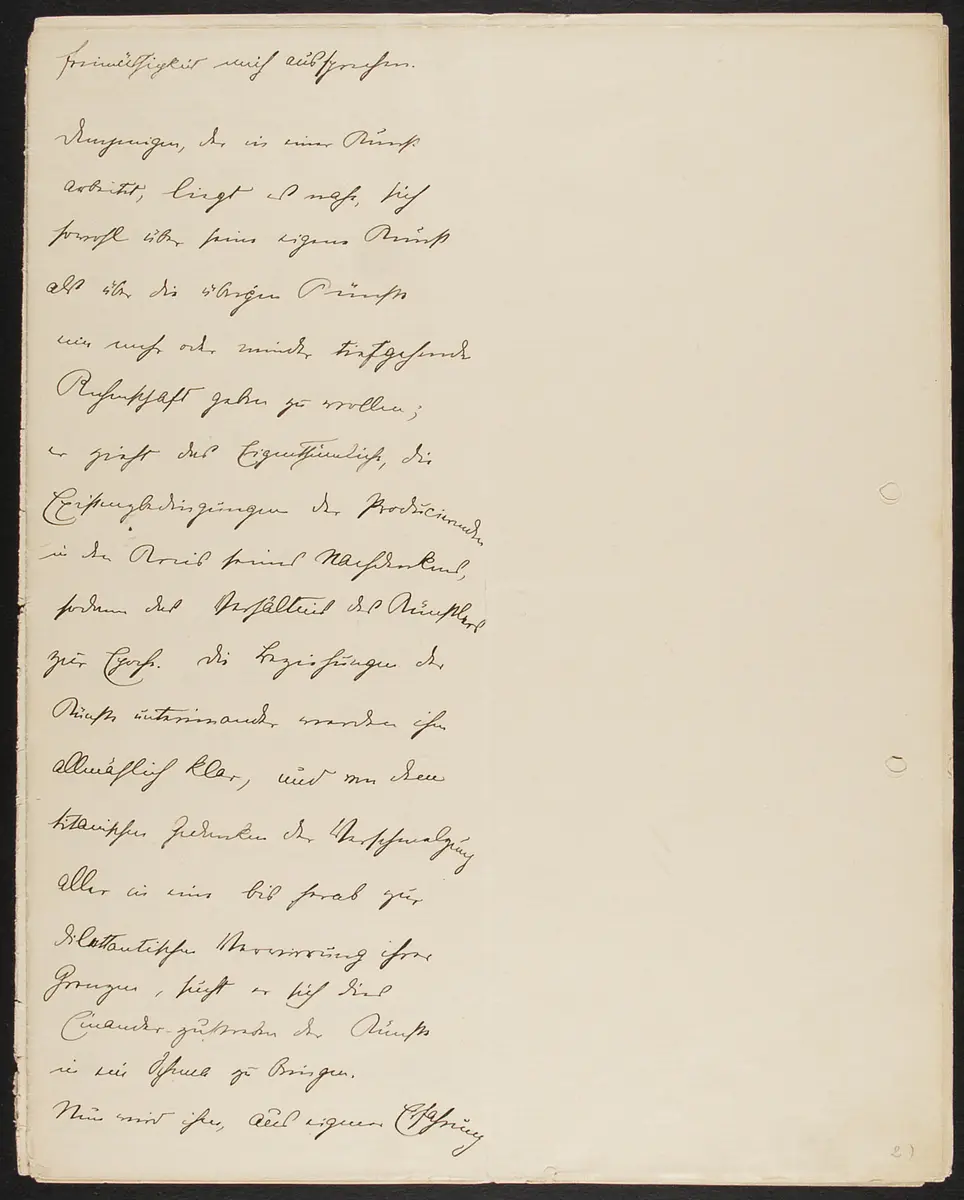 freimüthigkeit mich aussprechen.
demjenigen, der in einer Kunst
arbeitet, liegt es nahe, sich
sowohl über seine eigene Kunst
als über die übrigen Künste
eine mehr oder minder tiefgehende
Rechenschaft geben zu wollen;
er zieht das Eigenthümliche, die
Existenzbedingungen der Producierenden
in den Kreis seines Nachdenkens,
sodann das Verhältnis des Künstlers
zur Epoche. Die Beziehungen der
Künste untereinander werden ihm
allmählich klar, und von dem
titanischen Gedanken der Verschmelzung
aller in eine bis herab zur
dilettantischen Verwirrung ihrer
Grenzen, sucht er sich dies
Einander-zustreben der Künste
in ein Schema zu bringen.
Nun wird ihm, aus eigener Erfahrung
2)